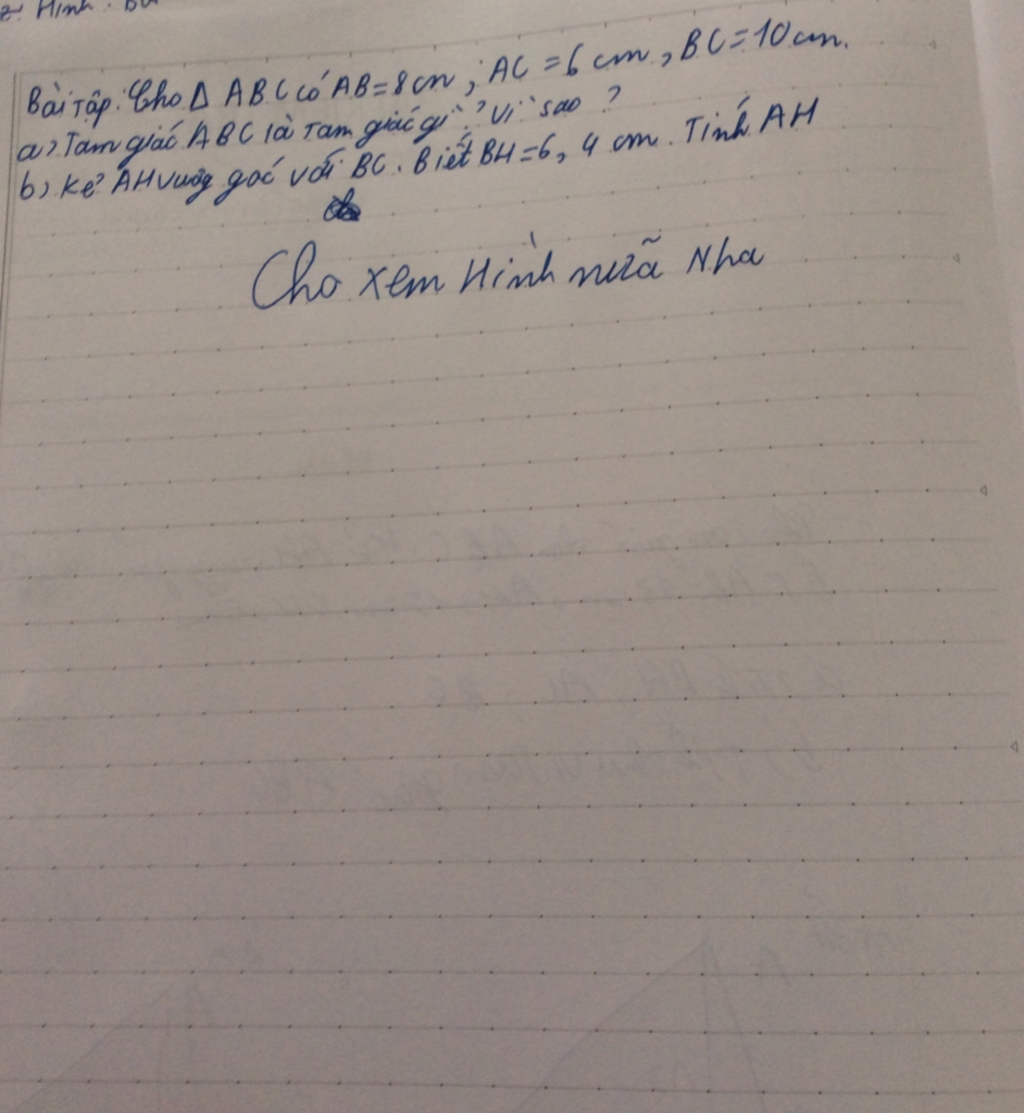 z. Hình.
Bài tập: Cho Δ ABC có AB = 8 cm ; AC = 6 cm , BC = 10 cm.
a) Tam giác ABC là Tam giác gì ? Vì sao ?
b) Kẻ AH vuông góc với BC. Biết BH = 6, 4 cm. Tính AH
Cho xem Hình nữa Nha